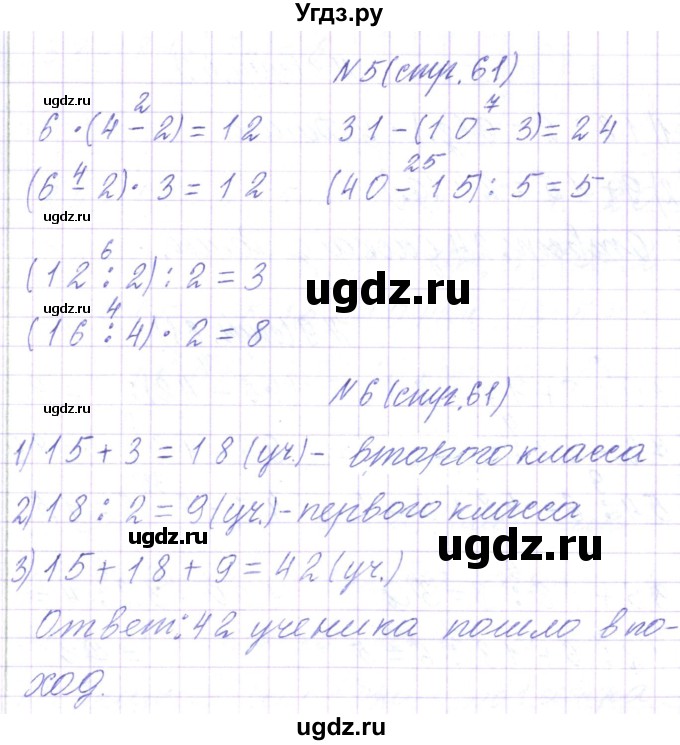 Угдз.ру
N 5 (стр. 61)
ugdz.ru
2 7
6 · (4 - 2) = 12 31 - (10 - 3) = 24
ugdz.ru
4 25
(6 - 2) · 3 = 12 (40 - 15) : 5 = 5
ugdz.ru
6
(12 : 2) : 2 = 3
ugdz.ru
ugdz.ru
4
(16 : 4) · 2 = 8
ugdz.ru
N 6 (стр. 61)
1) 15 + 3 = 18 (уч.) - второго класса
ugdz.ru
2) 18 : 2 = 9 (уч.) - первого класса
ugdz.ru
ugdz.ru
3) 15 + 18 + 9 = 42 (уч.)
Ответ: 42 ученика пошло в по-
ход.
ugdz.ru